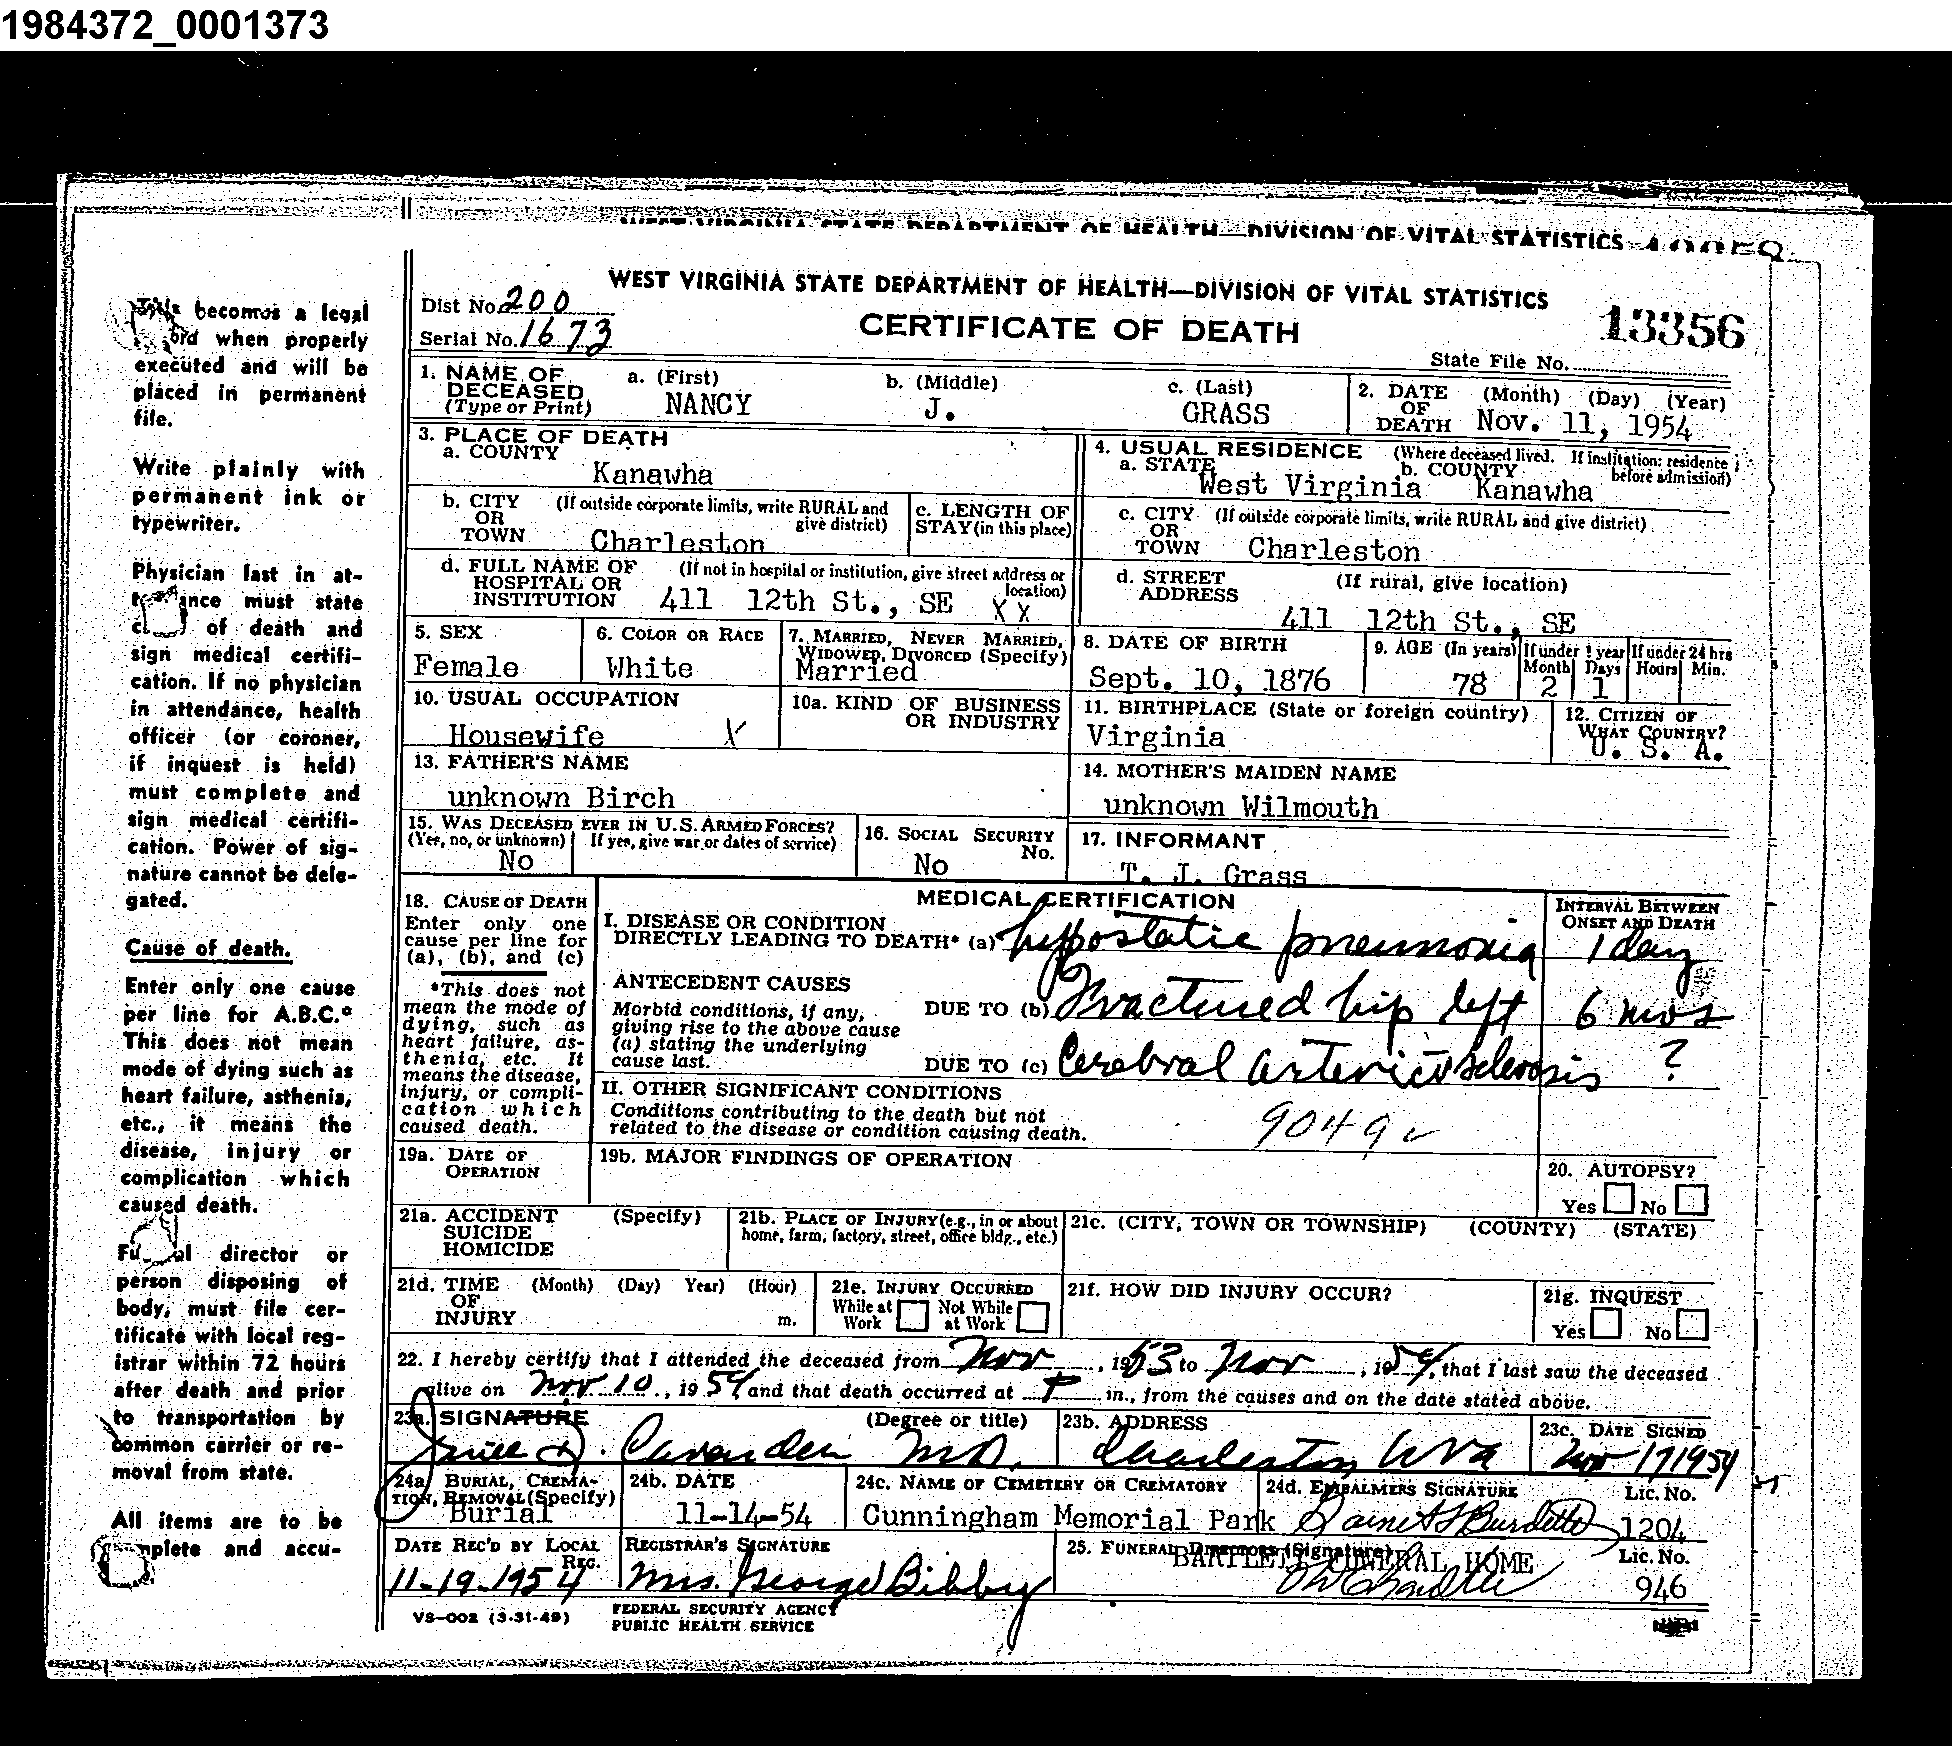 1984372_0001373
WEST VIRGINIA STATE DEPARTMENT OF HEALTH—DIVISION OF VITAL STATISTICS
WEST VIRGINIA STATE DEPARTMENT OF HEALTH—DIVISION OF VITAL STATISTICS
CERTIFICATE OF DEATH
Dist No. 200
Serial No. 1673
13356
State File No.
This becomes a legal
ord when properly
executed and will be
placed in permanent
file.
Write plainly with
permanent ink or
typewriter.
Physician last in at-
tendance must state
of death and
sign medical certifi-
cation. If no physician
in attendance, health
officer (or coroner,
if inquest is held)
must complete and
sign medical certifi-
cation. Power of sig-
nature cannot be dele-
gated.
Cause of death.
Enter only one cause
per line for A.B.C.*
This does not mean
mode of dying such as
heart failure, asthenia,
etc., it means the
disease, injury or
complication which
caused death.
Funeral director or
person disposing of
body, must file cer-
tificate with local reg-
istrar within 72 hours
after death and prior
to transportation by
common carrier or re-
moval from state.
All items are to be
mplete and accu-
1. NAME OF DECEASED (Type or Print) a. (First) NANCY b. (Middle) J. c. (Last) GRASS
2. DATE OF DEATH (Month) (Day) (Year) Nov. 11, 1954
3. PLACE OF DEATH
a. COUNTY Kanawha
b. CITY OR TOWN (If outside corporate limits, write RURAL and give district) Charleston
c. LENGTH OF STAY (in this place)
d. FULL NAME OF HOSPITAL OR INSTITUTION (If not in hospital or institution, give street address or location) 411 12th St., SE XX
4. USUAL RESIDENCE (Where deceased lived. If institution: residence before admission)
a. STATE West Virginia b. COUNTY Kanawha
c. CITY OR TOWN (If outside corporate limits, write RURAL and give district) Charleston
d. STREET ADDRESS (If rural, give location) 411 12th St., SE
5. SEX Female
6. COLOR OR RACE White
7. MARRIED, NEVER MARRIED, WIDOWED, DIVORCED (Specify) Married
8. DATE OF BIRTH Sept. 10, 1876
9. AGE (In years) 78 If under 1 year Month 2 Days 1 If under 24 hrs Hours Min.
10. USUAL OCCUPATION Housewife X
10a. KIND OF BUSINESS OR INDUSTRY
11. BIRTHPLACE (State or foreign country) Virginia
12. CITIZEN OF WHAT COUNTRY? U. S. A.
13. FATHER'S NAME unknown Birch
14. MOTHER'S MAIDEN NAME unknown Wilmouth
15. WAS DECEASED EVER IN U.S. ARMED FORCES? (Yes, no, or unknown) No (If yes, give war or dates of service)
16. SOCIAL SECURITY No. No
17. INFORMANT T. J. Grass
18. CAUSE OF DEATH
Enter only one cause per line for (a), (b), and (c)
*This does not mean the mode of dying, such as heart failure, asthenia, etc. It means the disease, injury, or complication which caused death.
MEDICAL CERTIFICATION
INTERVAL BETWEEN ONSET AND DEATH
I. DISEASE OR CONDITION DIRECTLY LEADING TO DEATH* (a) hypostatic pneumonia 1 day
ANTECEDENT CAUSES
Morbid conditions, if any, giving rise to the above cause (a) stating the underlying cause last.
DUE TO (b) Fractured hip left 6 mos
DUE TO (c) Cerebral arteriosclerosis ?
II. OTHER SIGNIFICANT CONDITIONS
Conditions contributing to the death but not related to the disease or condition causing death.
9049
19a. DATE OF OPERATION
19b. MAJOR FINDINGS OF OPERATION
20. AUTOPSY? Yes No
21a. ACCIDENT SUICIDE HOMICIDE (Specify)
21b. PLACE OF INJURY (e.g., in or about home, farm, factory, street, office bldg., etc.)
21c. (CITY, TOWN OR TOWNSHIP) (COUNTY) (STATE)
21d. TIME OF INJURY (Month) (Day) Year) (Hour) m.
21e. INJURY OCCURRED While at Work Not While at Work
21f. HOW DID INJURY OCCUR?
21g. INQUEST Yes No
22. I hereby certify that I attended the deceased from Nov, 1953 to Nov, 1954, that I last saw the deceased
alive on Nov. 10, 1954 and that death occurred at m., from the causes and on the date stated above.
23a. SIGNATURE Cavender M.D. (Degree or title)
23b. ADDRESS Charleston WVa
23c. DATE SIGNED Nov 17 1954
24a BURIAL, CREMATION, REMOVAL (Specify) Burial
24b. DATE 11-14-54
24c. NAME OF CEMETERY OR CREMATORY Cunningham Memorial Park
24d. EMBALMERS SIGNATURE Burdette Lic. No. 1204
DATE REC'D BY LOCAL REG. 11-19-1954
REGISTRAR'S SIGNATURE Mrs. George Bibby
25. FUNERAL DIRECTORS (Signature) BARTLETT FUNERAL HOME Lic. No. 946
VS-002 (3-31-49)
FEDERAL SECURITY AGENCY
PUBLIC HEALTH SERVICE